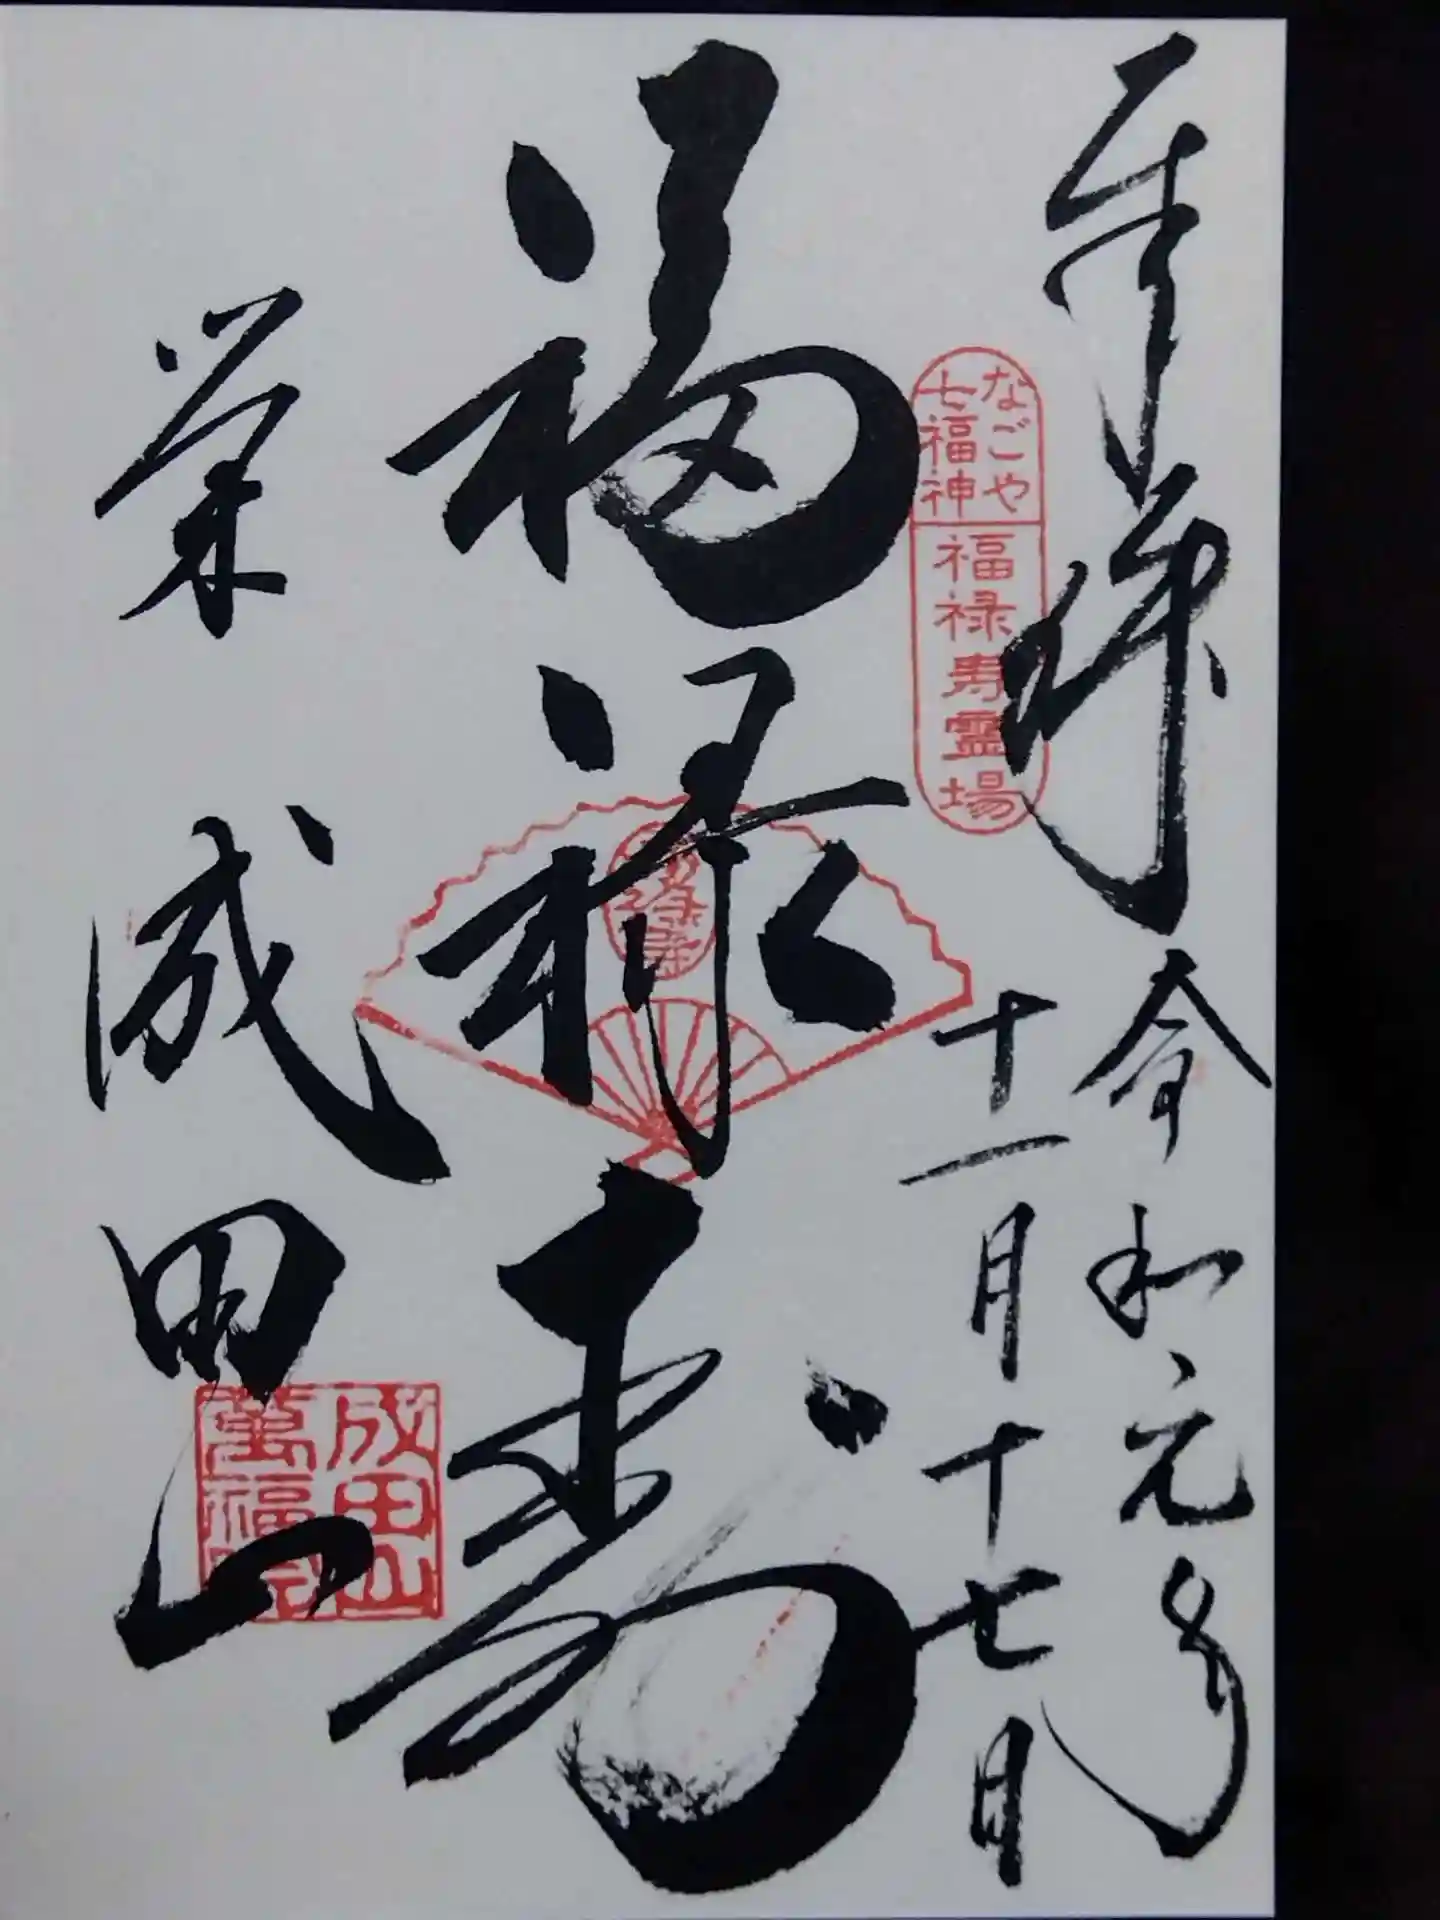 奉拝
令和元年
十一月十七日
なごや
七福神
福禄寿霊場
福禄寿
福禄寿
栄
成田山
成田山
萬福寺